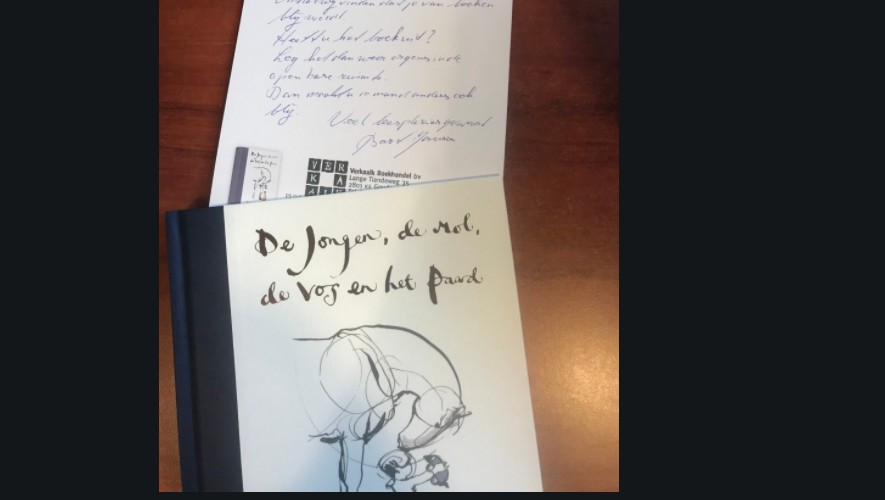 dat je van boeken
blij wordt.
Heeft u het boek uit?
Leg het dan weer ergens in de
openbare ruimte.
Dan maakt u iemand anders ook
blij.
Veel leesplezier gewenst
VER
KA
Verkaaik Boekhandel bv
Lange Tiendeweg 35
2801 KE
De Jongen, de mol,
de vos en het paard